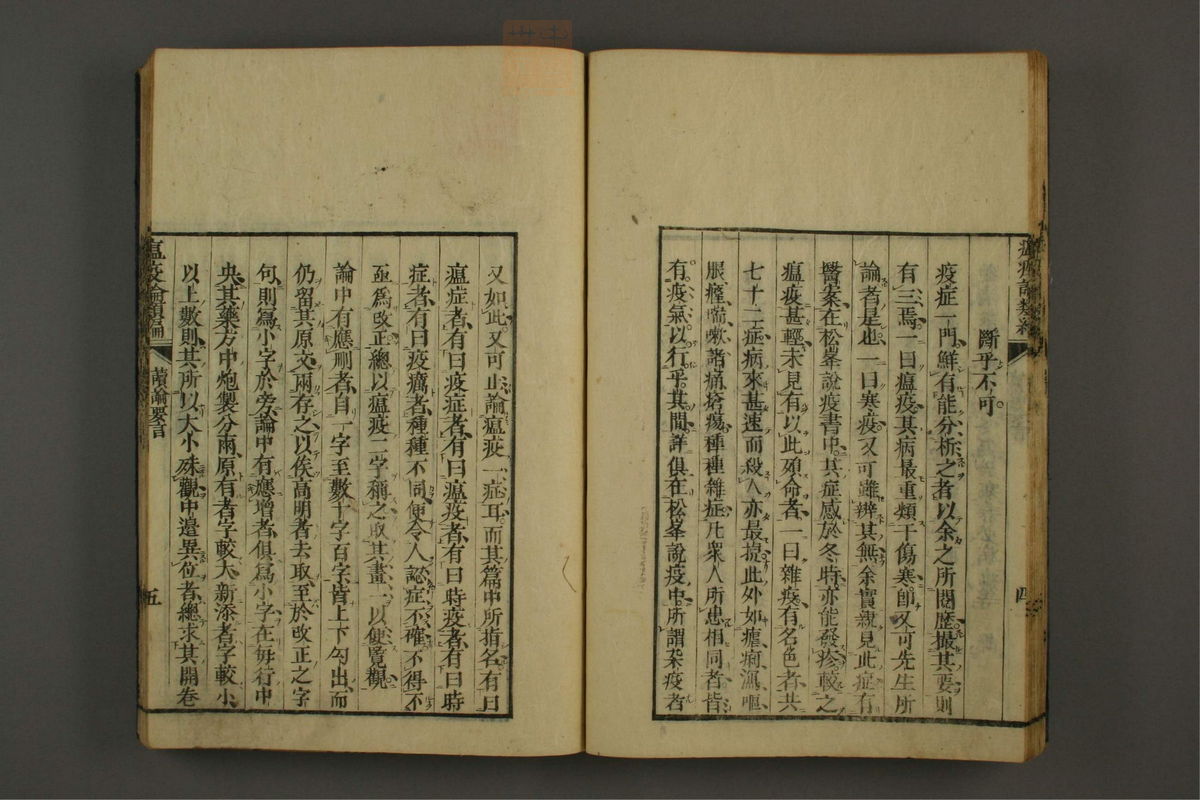 斷乎不可
疫症一門鮮有能分析之者以余之所閱歷撮其要則
有三焉一曰瘟疫其病最重類于傷寒卽又可先生所
論者是也一曰寒疫又可雖辨其無余實親見此症有
醫案在松峯說疫書中其症感於冬時亦能發疹較之
瘟疫甚輕未見有以此殞命者一曰雜疫有名色者共
七十二症病來甚速而殺人亦最捷此外如瘧痢瀉嘔
脹瘇喘嗽諸痛瘡瘍種種雜症凡衆人所患相同者皆
有疫氣以行乎其間詳俱在松峯說疫中所謂杂疫者
瘟疫論類編
四
又如此又可止論瘟疫一症耳而其篇中所指名有曰
瘟症者有曰疫症者有曰瘟疫者有曰時疫者有曰時
症者有曰疫癘者種種不同使令人認症不確不得不
亟爲改正總以瘟疫二字稱之取其畫一以便覽觀
論中有應刪者自一字至數十字百字皆上下勾出而
仍留其原文兩存之以俟高明者去取至於改正之字
句則爲小字於旁論中有應增者俱爲小字在每行中
央其藥方中炮製分兩原有者字較大新添者字較小
以上數則其所以大小殊觀中邉異位者總求其開卷
瘟疫論類編
讀論要言
五